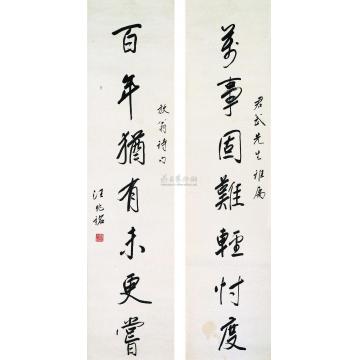 萬事固難輕忖度
君武先生雅屬
百年猶有未更嘗
放翁詩句
汪兆銘